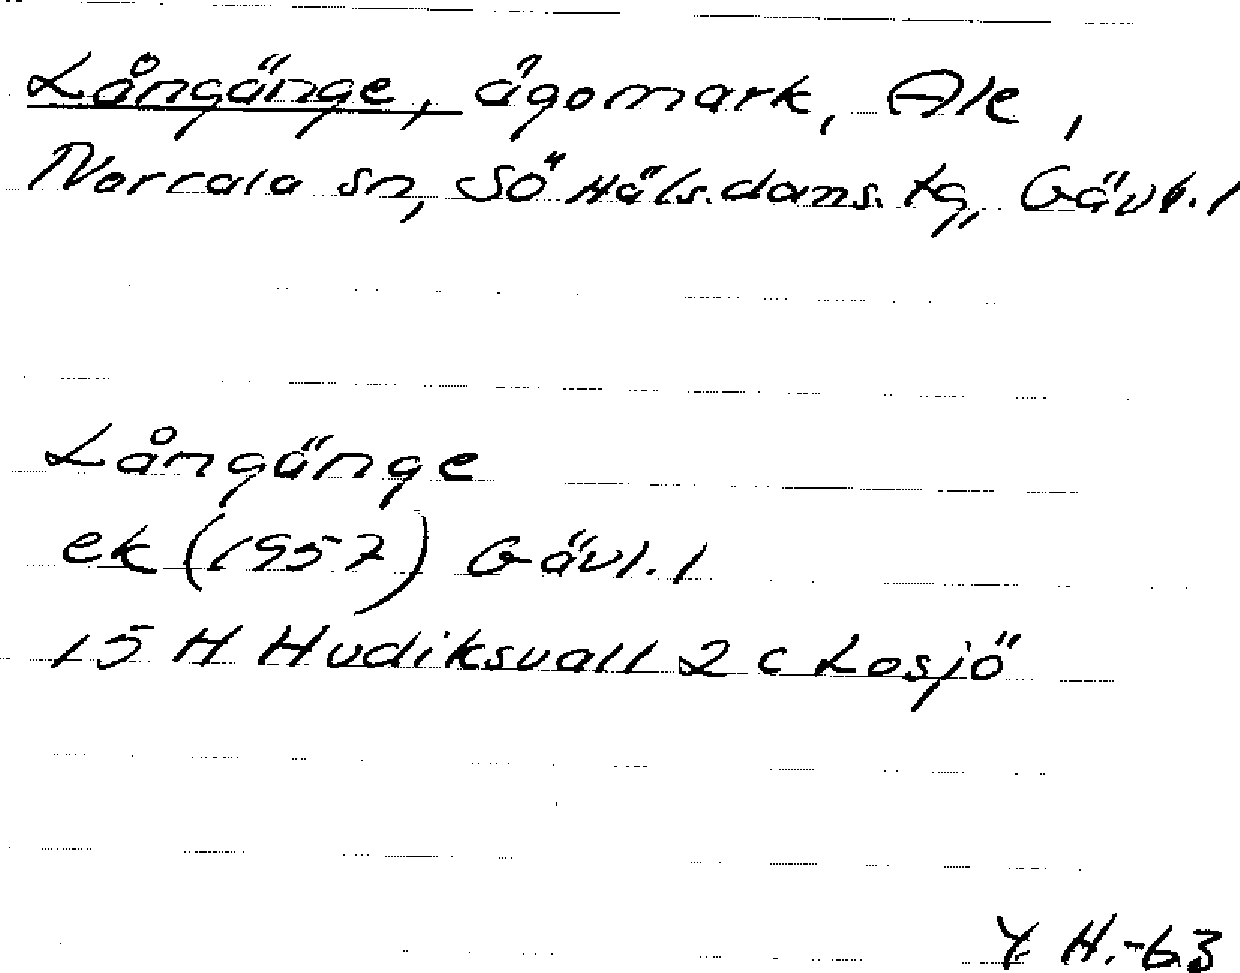 Långänge, ägomark, Ale,
Norrala sn, Sö Häls. doms. tg, Gävl. l
Långänge
ek (1957) Gävl. l
15 H Hudiksvall 2 c Losjö
Y. H. -63